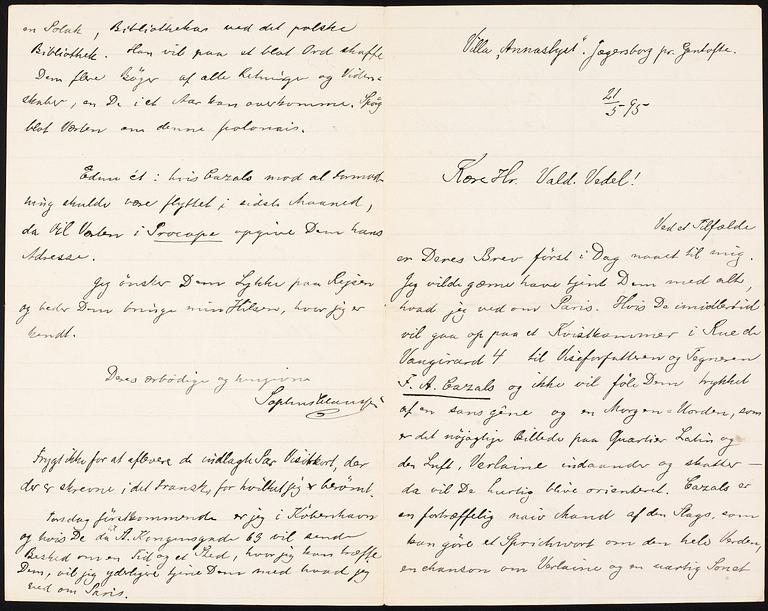 Villa "Annaslyst". Jægersborg pr. Gentofte.
21/5 95
Kære Hr. Vald. Vedel!
Ved et Tilfælde
er Deres Brev först i Dag naaet til mig.
Jeg vilde gærne have tjent Dem med alt,
hvad jeg ved om Paris. Hvis De imidlertid
vil gaa op paa et Kvistkammer i Rue de
Vaugirard 4 til Viseforfatteren og Tegneren
F. A. Cazals og ikke vil föle Dem trykket
af en sans gêne og en Morgen-Uorden, som
er det nöjagtige Billede paa Quartier Latin og
den Luft, Verlaine indaander og skatter —
da vil De hurtig blive orienteret. Cazals er
en fortræffelig naiv Mand af den Slags, som
kan göre et Sprichwort om den hele Verden,
en chanson om Verlaine og en uartig Sonet
en Polak, Bibliothekar ved det polske
Bibliothek. Han vil paa et blot Ord skaffe
Dem flere Böger af alle Retninger og Viden-
skaber, en De i et Aar kan overkomme. Spörg
blot Værten om denne polonais.
Endnu ét: hvis Cazals mod al Formod-
ning skulde være flyttet i sidste Maaned,
da vil Værten i Procope opgive Dem hans
Adresse.
Jeg önsker Dem Lykke paa Rejsen
og beder Dem bringe min Hilsen, hvor jeg er
kendt.
Deres ærbödige og hengivne
Sophus Claussen
Frygt ikke for at aflevere de indlagte Par Visitkort, der
er skrevne i det Fransk, for hvilket jeg er berömt.
Torsdag förstkommende er jeg i Köbenhavn
og hvis De da A. Kongensgade 63 vil sende
Besked om en Tid og et Sted, hvor jeg kan træffe
Dem, vil jeg yderligere tjene Dem med hvad jeg
ved om Paris.